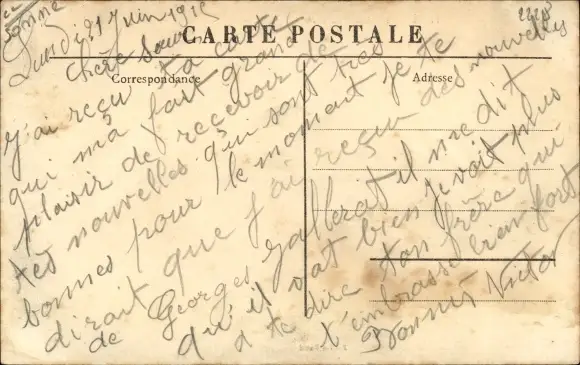 Lundi 21 Juin 1915
CARTE POSTALE
Chère Soeur
Correspondance
Adresse
J'ai reçu ta carte
qui m'a fait grand
plaisir de recevoir de
tes nouvelles qui sont très
bonnes pour le moment je te
dirait que j'ai reçu des nouvelles
de Georges Gallerat il me dit
qu'il vat bien je voit plus
a te dire ton frère qui
t'embrasse bien fort
Bonnet Victor